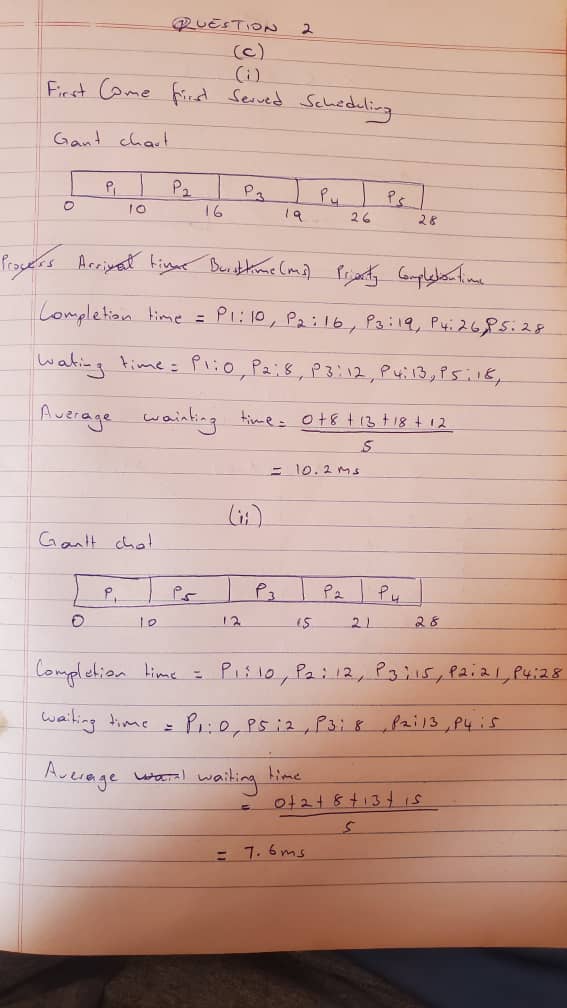 QUESTION 2
(c)
(i)
First Come first Served Scheduling
Gant chart
P1 P2 P3 P4 P5
0 10 16 19 26 28
Process Arrival time Burst time (ms) Priority Completion time
Completion time = P1:10, P2:16, P3:19, P4:26, P5:28
Wating time = P1:0, P2:8, P3:12, P4:13, P5:18,
Average wainting time = 0+8+13+18+12
5
= 10.2 ms
(ii)
Gantt chat
P1 P5 P3 P2 P4
0 10 12 15 21 28
Completion time = P1:10, P2:12, P3:15, P2:21, P4:28
Waiting time = P1:0, P5:2, P3:8, P2:13, P4:5
Average waiting time
= 0+2+8+13+15
5
= 7.6ms